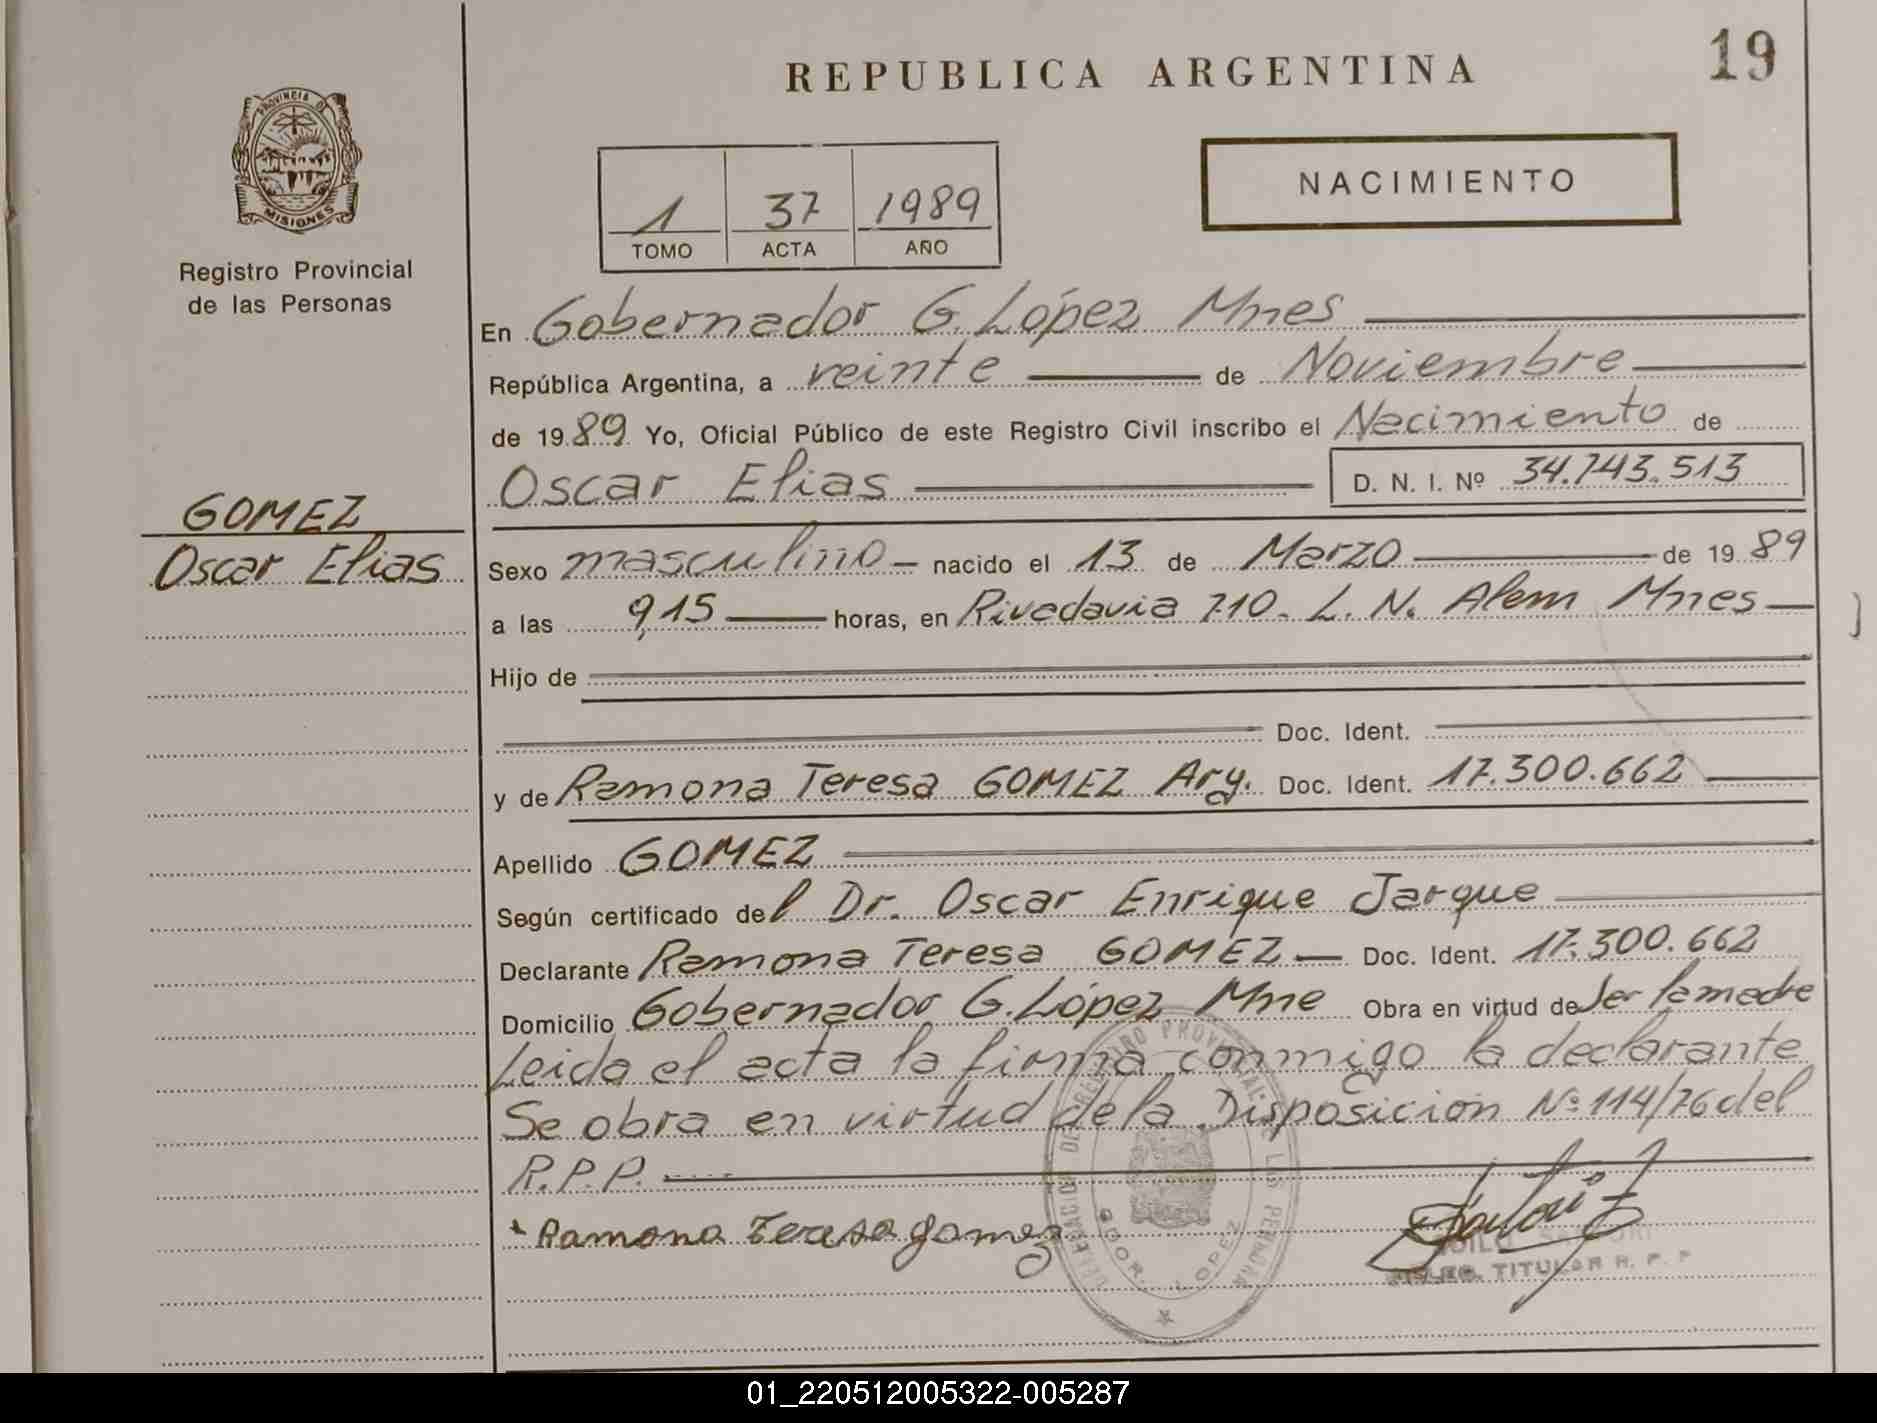 REPUBLICA ARGENTINA
19
PROVINCIA DE
MISIONES
Registro Provincial
de las Personas
1 37 1989
TOMO ACTA AÑO
NACIMIENTO
En Gobernador G. López Mnes
República Argentina, a veinte de Noviembre
de 1989 Yo, Oficial Público de este Registro Civil inscribo el Nacimiento de
Oscar Elias D. N. I. Nº 34.743.513
GOMEZ
Oscar Elias
Sexo masculino nacido el 13 de Marzo de 1989
a las 9,15 horas, en Rivadavia 710. L. N. Alem Mnes
Hijo de
Doc. Ident.
y de Ramona Teresa GOMEZ Arg. Doc. Ident. 17.300.662
Apellido GOMEZ
Según certificado del Dr. Oscar Enrique Jarque
Declarante Ramona Teresa GOMEZ Doc. Ident. 17.300.662
Domicilio Gobernador G. López Mne Obra en virtud de ser la madre
Leida el acta la firma conmigo la declarante
Se obra en virtud de la Disposición Nº 114/76 del
R.P.P.
Ramona Teresa gomez
DELEGACION DEL REGISTRO PROVINCIAL DE LAS PERSONAS
GDOR. LOPEZ
TITULAR R. P. P.
01_220512005322-005287